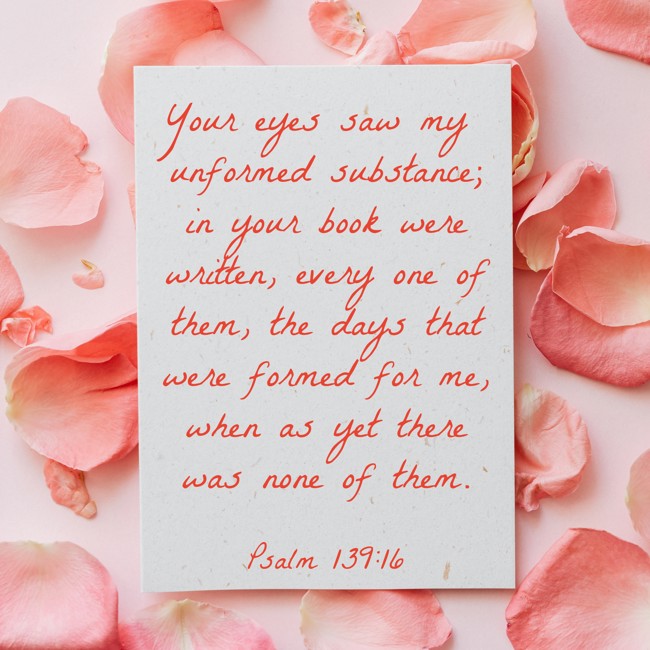 Your eyes saw my
unformed substance;
in your book were
written, every one of
them, the days that
were formed for me,
when as yet there
was none of them.
Psalm 139:16